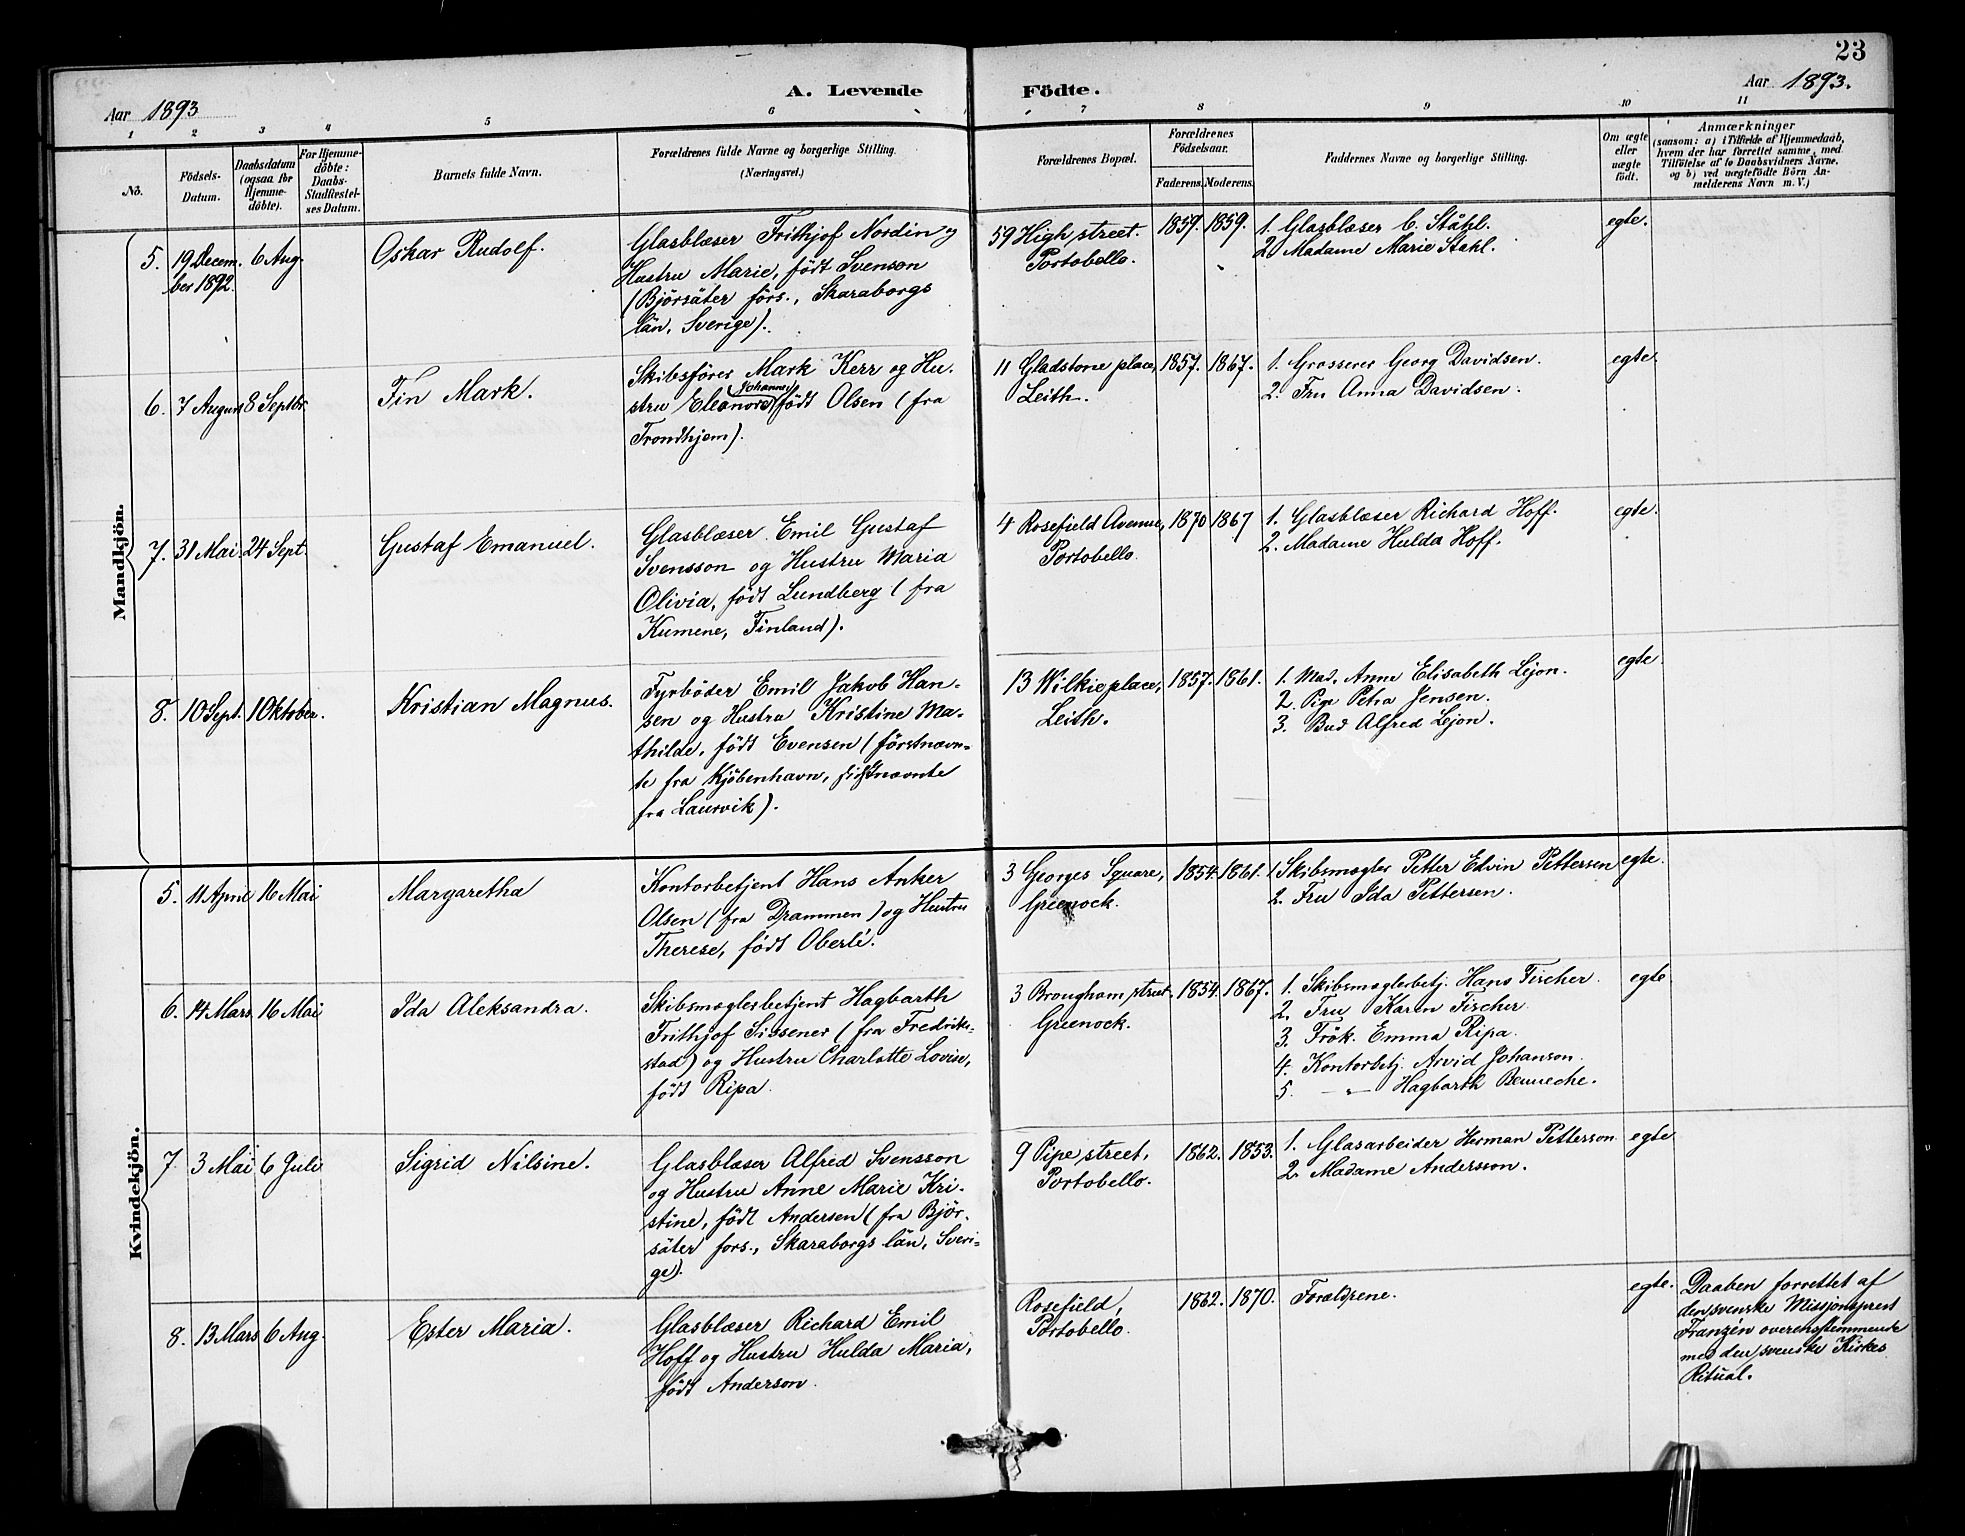 23
A. Levende Födte.
Aar 1893
Aar 1893.
1 2 3 4 5 6 7 8 9 10 11
No.
Födsels-Datum.
Daabsdatum (ogsaa for Hjemme-döbte).
For Hjemme-döbte: Daabs-Stadfæstel-ses Datum.
Barnets fulde Navn.
Forældrenes fulde Navne og borgerlige Stilling.
(Næringsvei.)
Forældrenes Bopæl.
Forældrenes Födselsaar.
Faderens. Moderens.
Faddernes Navne og borgerlige Stilling.
Om ægte eller uægte födt.
Anmærkninger
(saasom: a) i Tilfælde af Hjemmedaab, hvem der har forrettet samme, med Tilföielse af to Daabsvidners Navne, og b) ved uægtefödte Börn An-melderens Navn m. V.)
Mandkjön.
5. 19 Decem-ber 1892. 6 Aug. Oskar Rudolf.
Glasblæser Frithjof Nordin og
Hustru Marie, födt Svenson
(Björsäter förs., Skaraborgs
län, Sverige).
59 High street.
Portobello.
1859. 1859.
1. Glasblæser C. Ståhl.
2. Madame Marie Ståhl.
egte.
6. 7 August 8 Septbr. Fin Mark.
Skibsförer Mark Kerr og Hu-
stru Eleonore Johanne födt Olsen (fra
Trondhjem).
11 Gladstone place,
Leith.
1857. 1867.
1. Grosserer Georg Davidsen.
2. Fru Anna Davidsen.
egte.
7. 31 Mai. 24 Sept. Gustaf Emanuel.
Glasblæser Emil Gustaf
Svensson og Hustru Maria
Olivia, födt Lundberg (fra
Kumene, Finland).
4 Rosefield Avenue,
Portobello.
1870 1867
1. Glasblæser Richard Hoff.
2. Madame Hulda Hoff.
egte.
8. 10 Sept. 1 Oktober. Kristian Magnus.
Fyrböder Emil Jakob Han-
sen og Hustru Kristine Ma-
thilde, födt Evensen (förstnævn-
te fra Kjöbenhavn, sidstnævnte
fra Laurvik).
13 Wilkie place,
Leith.
1857. 1861.
1. Mad. Anne Elisabeth Lejon.
2. Pige Petra Jensen.
3. Bud Alfred Lejon.
egte.
Kvindekjön.
5. 11 April 16 Mai Margaretha
Kontorbetjent Hans Anker
Olsen (fra Drammen) og Hustru
Therese, födt Oberlé.
3 Georges Square,
Greenock.
1854. 1861.
1 Skibsmægler Petter Edvin Pettersen
2. Fru Ida Pettersen.
egte.
6. 14 Mars 16 Mai Ida Aleksandra.
Skibsmæglerbetjent Hagbarth
Frithjof Sissener (fra Fredrik-
stad) og Hustru Charlotte Lovise,
födt Ripa.
3 Brougham street.
Greenock.
1854. 1867.
1. Skibsmæglerbetj. Hans Fischer.
2. Fru Karen Fischer.
3. Frök. Emma Ripa.
4. Kontorbetj. Arvid Johanson.
5. — " — Hagbarth Benneche.
egte
7. 3 Mai 6 Juli Sigrid Nilsine.
Glasblæser Alfred Svensson
og Hustru Anne Marie Kri-
stine, födt Andersen (fra Björ-
säter fors., Skaraborgs län, Sveri-
ge).
9 Pipe street,
Portobello.
1862. 1853.
1. Glasarbeider Herman Petterson
2. Madame Andersson.
egte
8. 13 Mars 6 Aug. Ester Maria.
Glasblæser Richard Emil
Hoff og Hustru Hulda Maria,
födt Anderson.
Rosefield,
Portobello.
1862. 1870.
Forældrene.
egte.
Daaben forrettet af
den svenske Missjonsprest
Franzén overensstemmende
med den svenske Kirkes
Ritual.